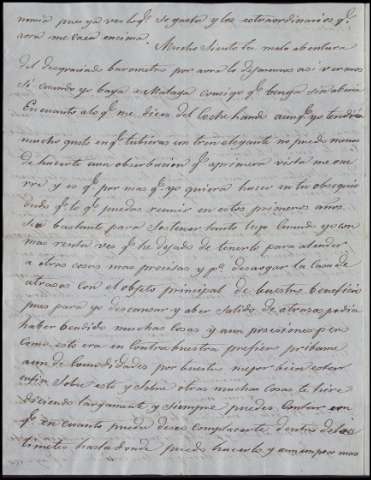 nomia pues ya ves lo qe. se gasta y los extraordinarios qe.
sora me caen encima.
Mucho siento la mala abentura
del desgraciado barometro por aora lo dejaremos asi veremos
si cuando yo baya a Malaga consigo qe. benga sin aberia
En cuanto a lo qe. me dices del Coche hande aunqe. yo tendria
mucho gusto en qe. tubieras un tren elegante no puedo menos
de hacerte una obserbacion qe. a primera vista me ocu
rre y es qe. por mas qe. yo quiera hacer en tu obsequio
dudo qe. lo qe. puedas reunir en estos primeros años
sea bastante para sostener tanto lujo Cuando yo con
mas renta ves qe. he dejado de tenerlo para atender
a otras cosas mas precisas y pa. desaogar la Casa de
atrasos con el objeto principal de buestro beneficio
pues para yo descansar y aber salido de atrasos podia
haber bendido muchas cosas y aun posesiones pero
como esto era en contra buestra prefieri pribarme
aun de Comodidades por buestro mejor bien estar
enfin sobre esto y sobre otras muchas cosas te hire
diciendo largamente y siempre puedes Contar con
qe. en cuanto pueda deseo complacerte dentro de los
limites hasta donde puedo hacerlo y aun un poco mas